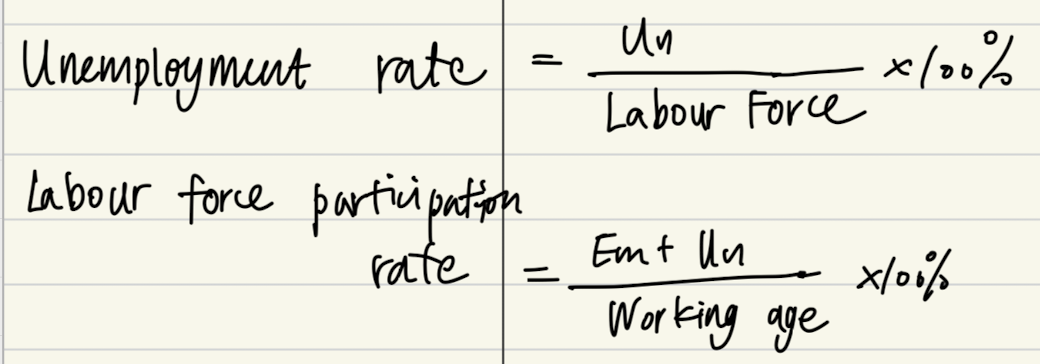 Unemployment rate = Un / Labour Force ×100%
Labour force participation
rate = Em + Un / Working age ×100%